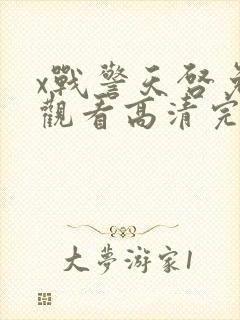 x戰警天啓免
觀看高清完
大夢游家1